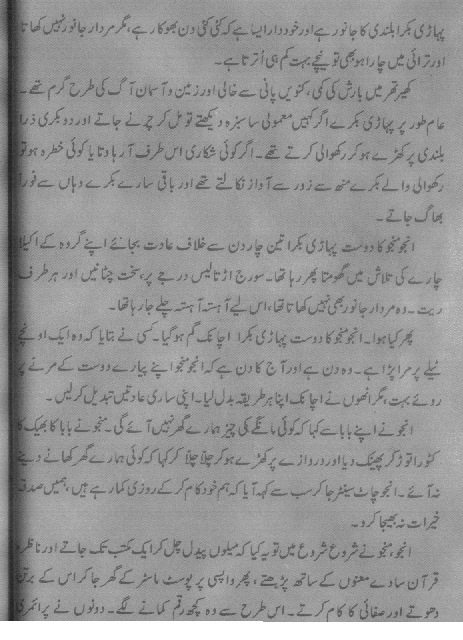 پہاڑی بکرا بلندی کا جانور ہے اور خوددار ایسا ہے کہ کئی کئی دن بھوکا رہے، مگر مردار جانور نہیں کھاتا
اور ترائی میں چارا ہو بھی تو نیچے بہت کم ہی اُترتا ہے۔
کھیرتھر میں بارش کی کمی، کنویں پانی سے خالی اور زمین و آسمان آگ کی طرح گرم تھے۔
عام طور پر پہاڑی بکرے اگر کہیں معمولی سا سبزہ دیکھتے تو مل کر چرنے جاتے اور دو بکری ذرا
بلندی پر کھڑے ہو کر رکھوالی کرتے تھے۔ اگر کوئی شکاری اس طرف آ رہا ہوتا یا کوئی خطرہ ہوتو
رکھوالی والے بکرے منھ سے زور سے آواز نکالتے تھے اور باقی سارے بکرے وہاں سے فوراً
بھاگ جاتے۔
انجو منجو کا دوست پہاڑی بکرا تین چار دن سے خلاف عادت بجائے اپنے گروہ کے اکیلا
چارے کی تلاش میں گھومتا پھر رہا تھا۔ سورج اڑتالیس درجے پر، سخت چٹانیں اور ہر طرف
ریت۔ وہ مردار جانور بھی نہیں کھاتا تھا، اس لیے آہستہ آہستہ چلے جا رہا تھا۔
پھر کیا ہوا۔ انجو منجو کا دوست پہاڑی بکرا اچانک گم ہو گیا۔ کسی نے بتایا کہ وہ ایک اونچے
ٹیلے پر مرا پڑا ہے۔ وہ دن ہے اور آج کا دن ہے کہ انجو منجو اپنے پیارے دوست کے مرنے پر
روئے بہت، مگر انھوں نے اچانک اپنا ہر طریقہ بدل لیا۔ اپنی ساری عادتیں تبدیل کر لیں۔
انجو نے اپنے بابا سے کہا کہ کوئی مانگے کی چیز ہمارے گھر نہیں آئے گی۔ منجو نے بابا کا بھیک کا
کٹورا توڑ کر پھینک دیا اور دروازے پر کھڑے ہو کر چلّا چلّا کر کہا کہ کوئی ہمارے گھر کھانے دینے
نہ آئے۔ انجو چاٹ سینٹر جا کر سب سے کہہ آیا کہ ہم خود کام کر کے روزی کما رہے ہیں، ہمیں صدقہ
خیرات نہ بھیجا کرو۔
انجو، منجو نے شروع شروع میں تو یہ کیا کہ میلوں پیدل چل کر ایک مکتب تک جاتے اور ناظرہ
قرآن سادے معنوں کے ساتھ پڑھتے، پھر واپسی پر پوسٹ ماسٹر کے گھر جا کر اس کے برتن
دھوتے اور صفائی کا کام کرتے۔ اس طرح سے وہ کچھ رقم کمانے لگے۔ دونوں نے پرائمری